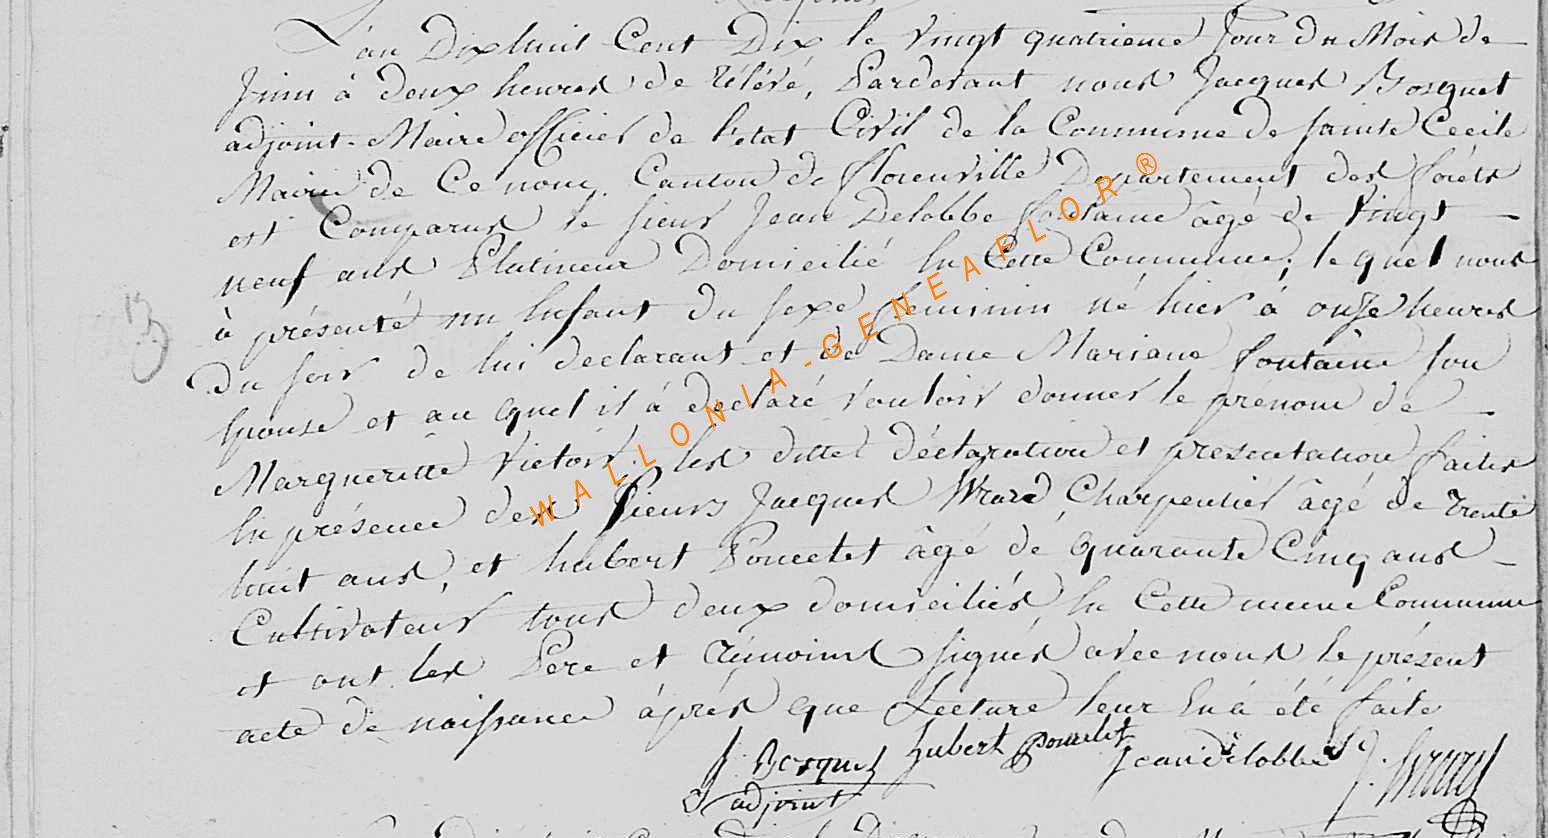 L'an Dixhuit Cent Dix le vingt quatrieme Jour du Mois de
Juin à deux heures de rélévé, Pardevant nous Jacques Bosquet
adjoint-Maire officier de l'etat Civil de la Commune de Sainte Cecile
Mairie de Canton de florenville Departement des foréts
est Comparus le sieur Jean Delobbe fontaine âgé de vingt
neuf ans Platineur Domicilié En Cette Commune, lequel nous
à présenté un Enfant du sexe feminin né hier à onze heures
du soir de lui declarant et de Dame Mariane fontaine son
Epouse et au quel il à declaré vouloir donner le prénom de
Margueritte Victoir. les dittes déclaration et presentation faites
En présence des Sieurs Jacques Charpentier âgé de trente
huit ans, et hubert Poncelet âgé de quarante Cinq ans
Cultivateur tous deux domiciliés En Cette meme Commune
et ont les Pere et témoins signés avec nous le présent
acte de naissance áprés que Lecture leur En à été faite
J. Bosquet hubert poncelet Jean Delobbe
adjoint
WALLONIA-GENEAFLOR®